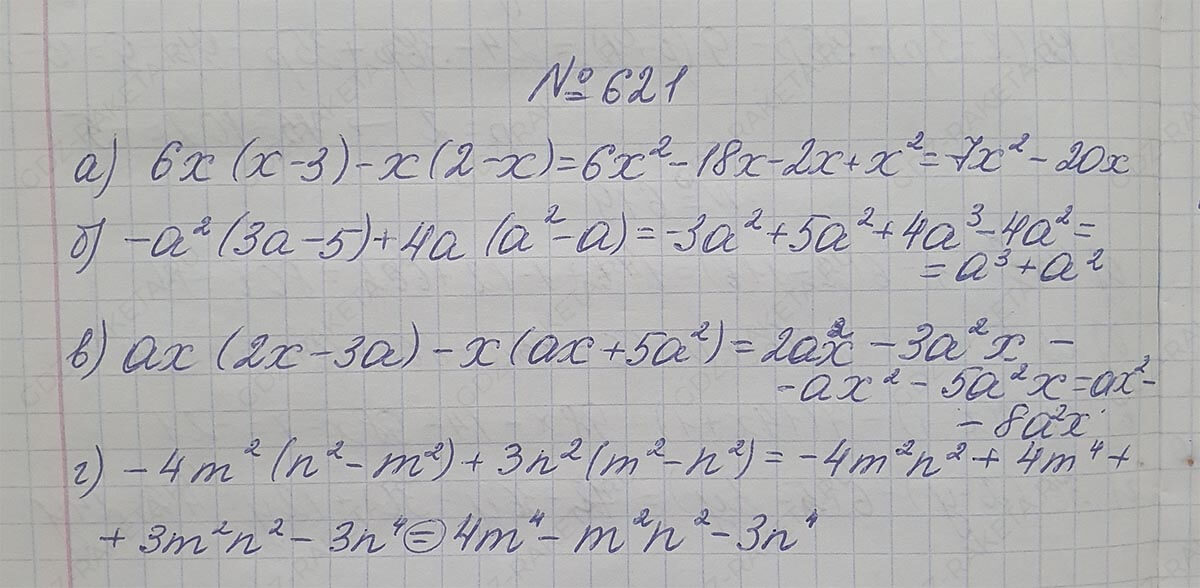 № 621
а) 6x (x-3) - x (2-x) = 6x² - 18x - 2x + x² = 7x² - 20x
б) -a² (3a-5) + 4a (a²-a) = -3a² + 5a² + 4a³ - 4a² =
= a³ + a²
в) ax (2x-3a) - x (ax+5a²) = 2ax² - 3a²x -
- ax² - 5a²x = ax² -
- 8a²x
г) -4m² (n²-m²) + 3n² (m²-n²) = -4m²n² + 4m⁴ +
+ 3m²n² - 3n⁴ = 4m⁴ - m²n² - 3n⁴